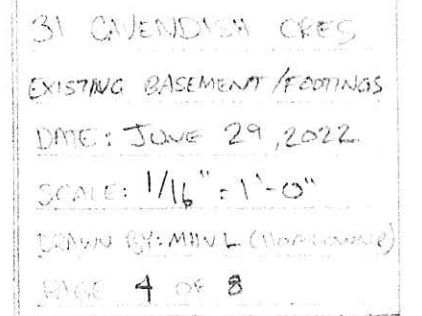 31 CAVENDISH CRES
EXISTING BASEMENT/FOOTINGS
DATE: JUNE 29, 2022
SCALE: 1/16" = 1'-0"
DRAWN BY: (HOMEOWNER)
PAGE 4 OF 8